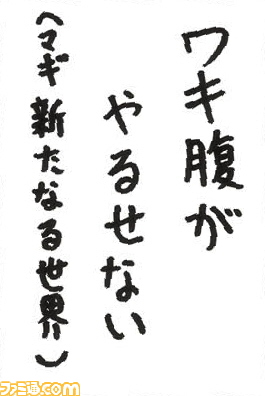 ワキ腹が
やるせない
(マギ 新たなる世界)
ファミ通com